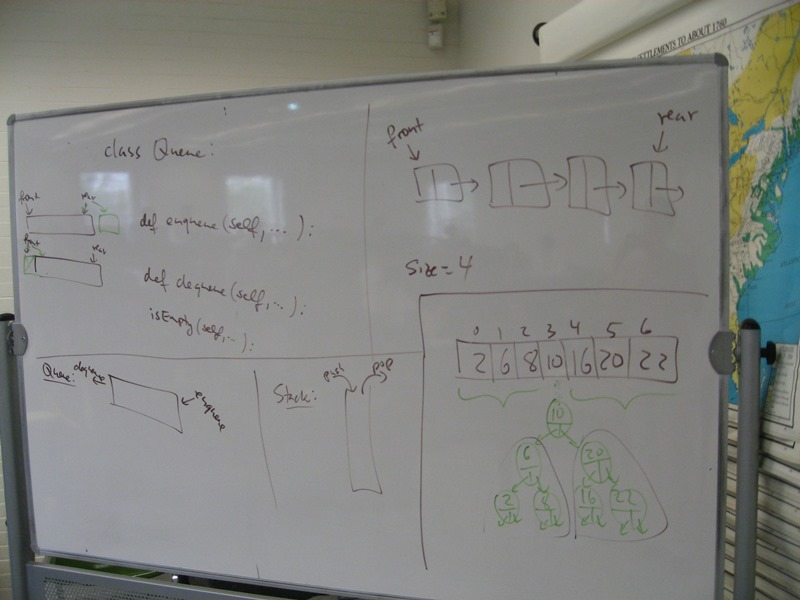 SETTLEMENTS TO ABOUT 1760
class Queue:
front rear
def enqueue(self, ...):
front rear
def dequeue(self, ...):
isEmpty(self, ...):
front
rear
size = 4
Queue: dequeue
enqueue
Stack: push pop
0 1 2 3 4 5 6
2 6 8 10 16 20 22
10
6 20
2 8 16 22